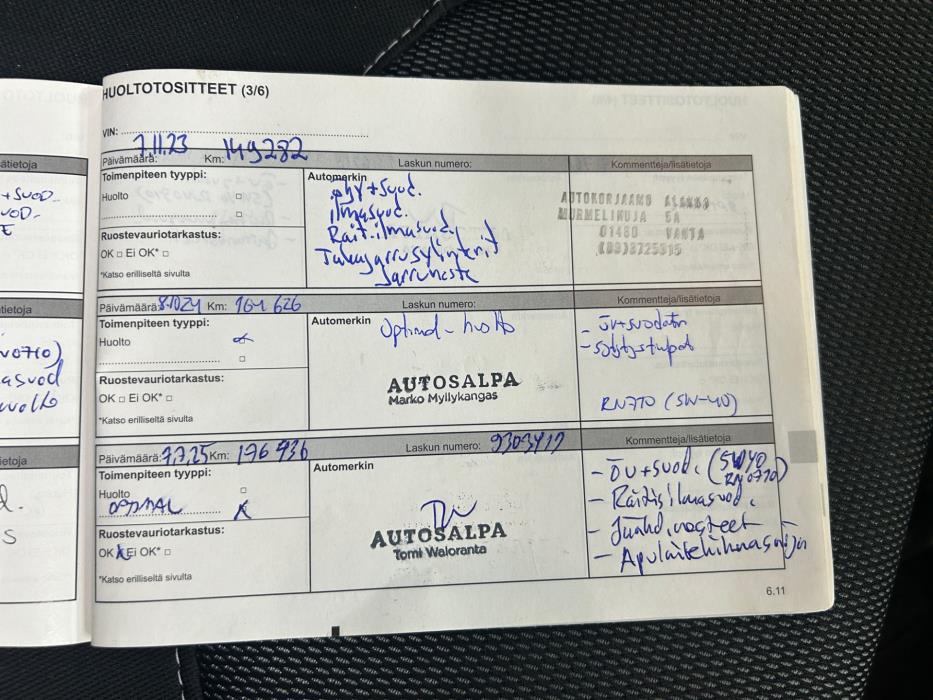 HUOLTOTOSITTEET (3/6)
VIN:
7.11.23 149282
Päivämäärä: Km: Laskun numero: Kommentteja/lisätietoja
Toimenpiteen tyyppi:
Huolto
Ruostevauriotarkastus:
OK □ Ei OK* □
*Katso erilliseltä sivulta
Automerkin
öljy+suod.
ilmasuod.
Rait.ilmasuod.
Takajarrusylinterit
Jarruneste
AUTOKORJAAMO
MURMELIKUJA 6A
01480 VANTA
(09)8725315
Päivämäärä: 8.10.24 Km: 164 626 Laskun numero: Kommentteja/lisätietoja
Toimenpiteen tyyppi:
Huolto
Ruostevauriotarkastus:
OK □ Ei OK* □
*Katso erilliseltä sivulta
Automerkin
Optimal-huolto
AUTOSALPA
Marko Myllykangas
- öv+suodatin
- sytytystulpat
RN710 (5W-40)
Päivämäärä: 7.7.25 Km: 176 936 Laskun numero: 9303417
Kommentteja/lisätietoja
Toimenpiteen tyyppi:
Huolto
OPTIMAL X
Ruostevauriotarkastus:
OK X Ei OK* □
*Katso erilliseltä sivulta
Automerkin
AUTOSALPA
Tomi Waloranta
- Öv+suod. (5W40
RN0710)
- Raitisilmasuod.
- Jäähd.nesteet
- Apulaitehihnasarja
6.11
ätietoja
+SUOD
asuod